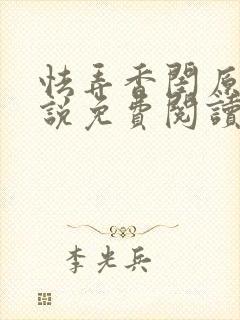 怯弄香閨原
說免費閱讀
李光兵